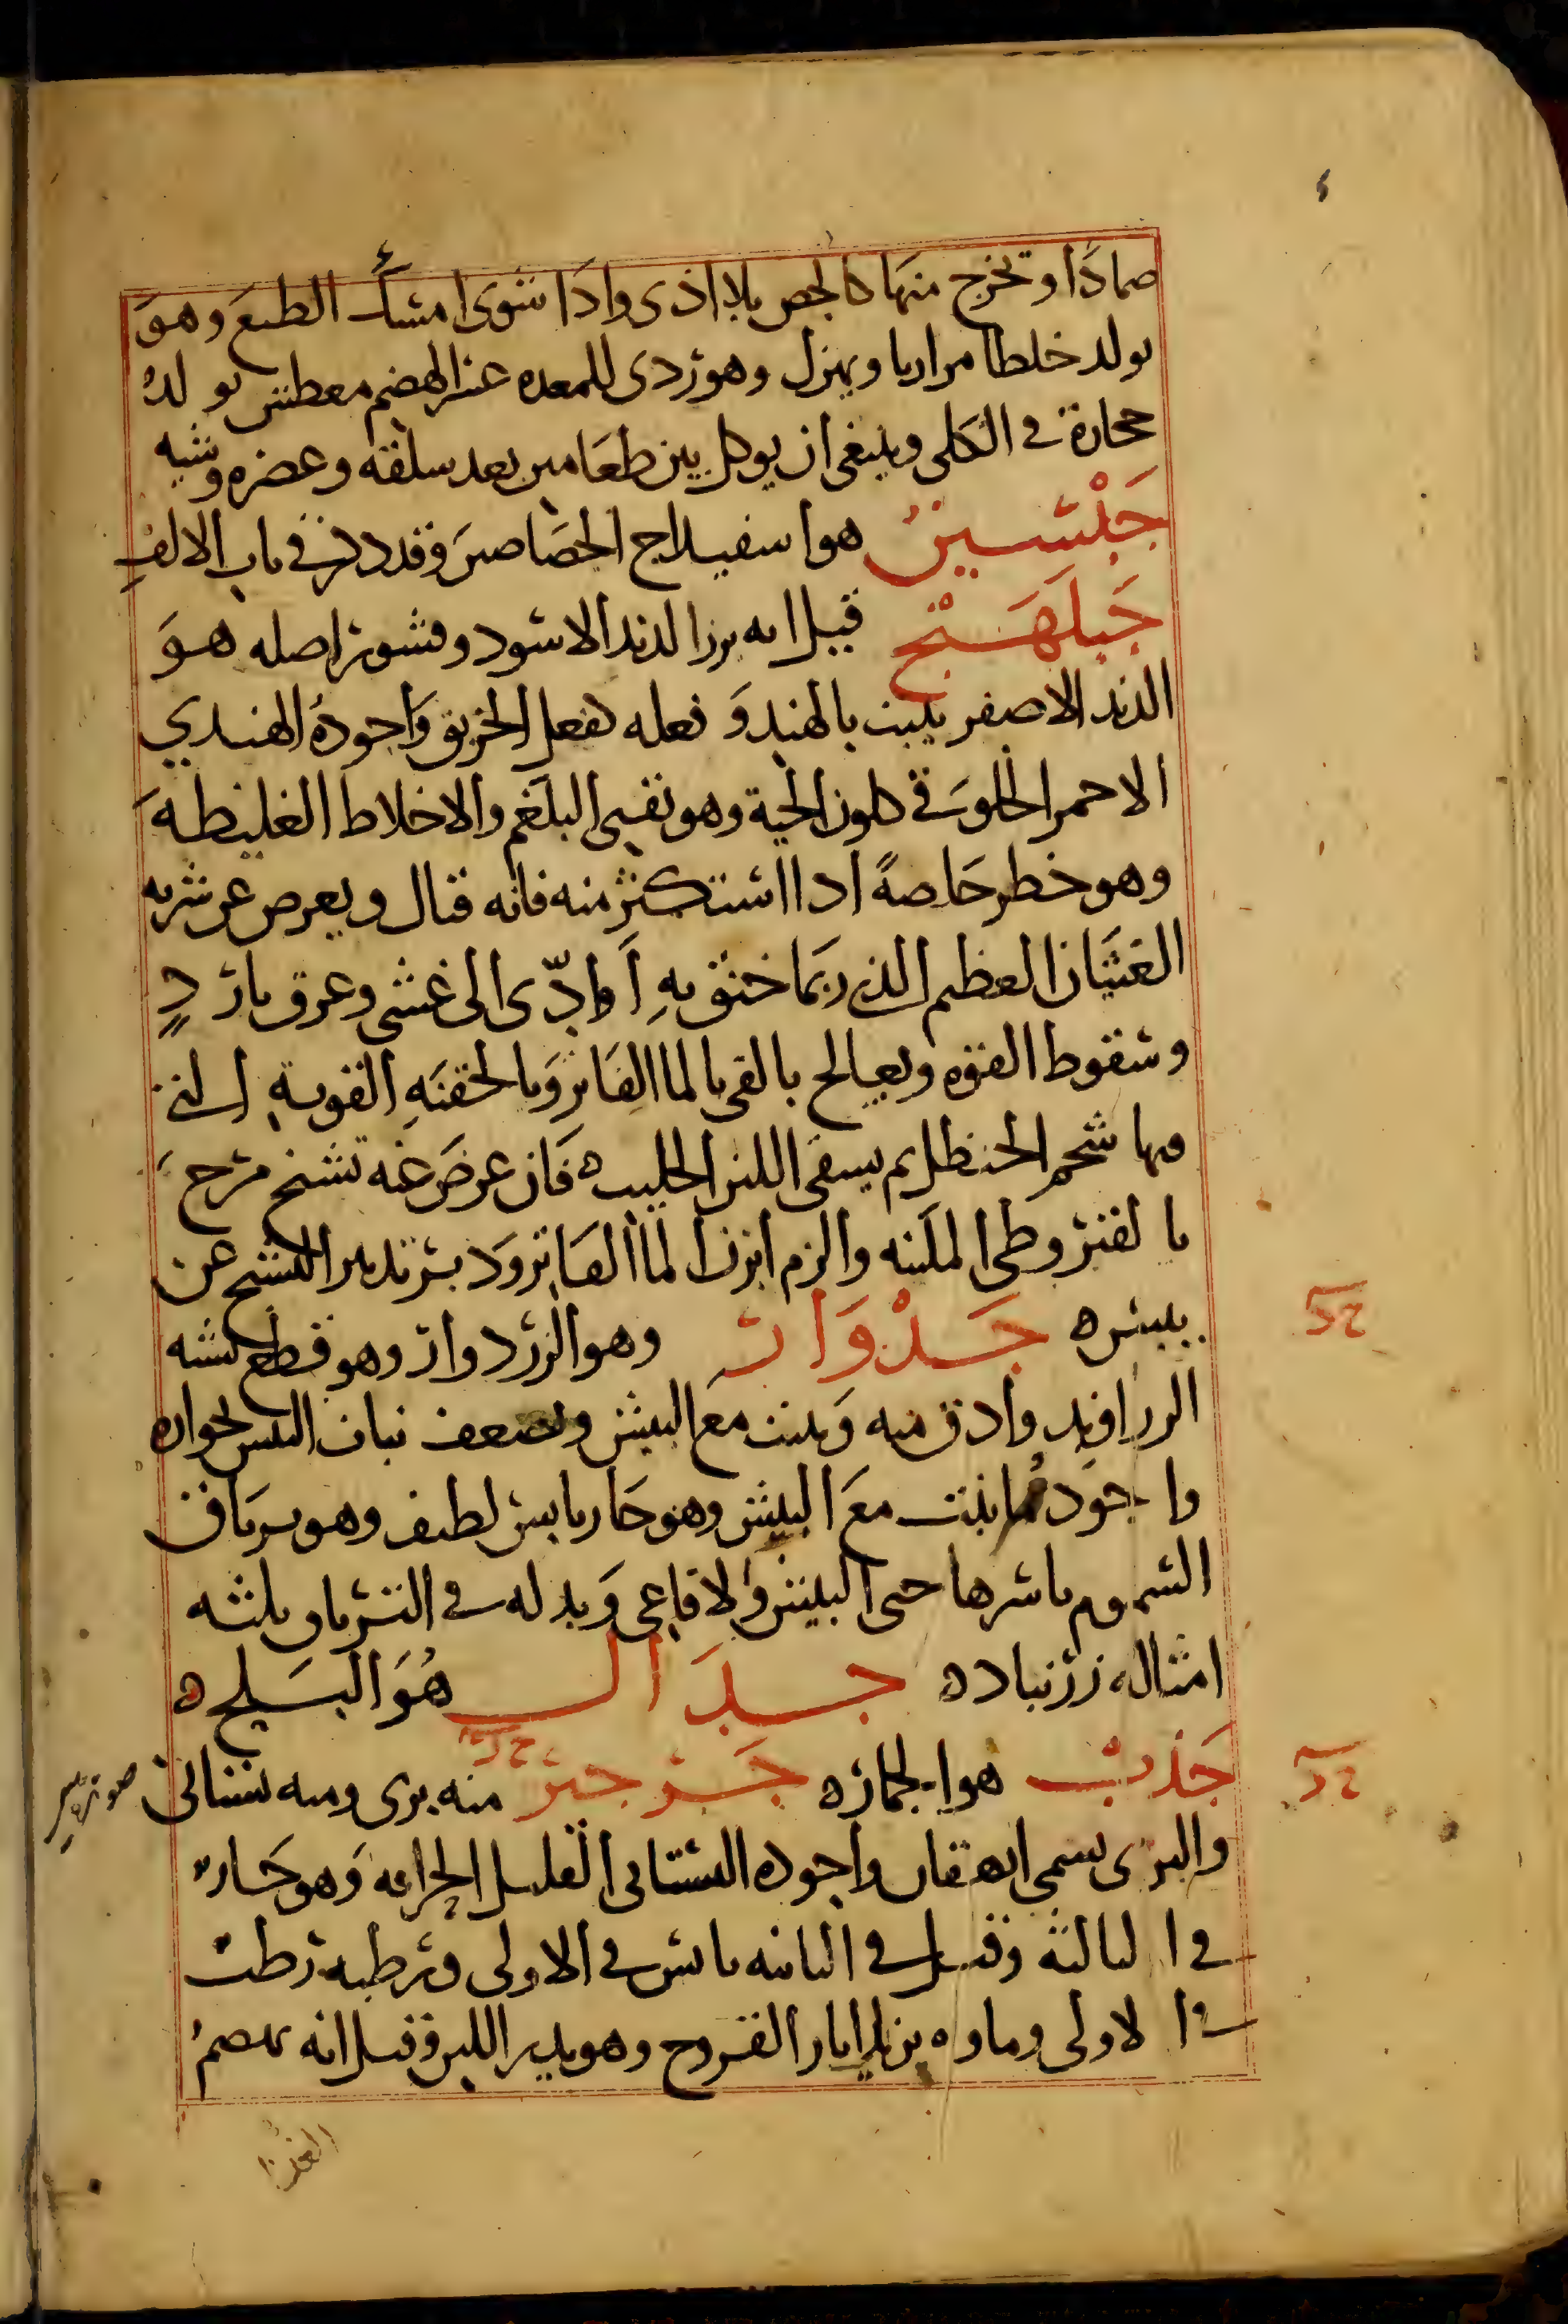 صمادا وتخرج منها كالجص بلا اذى واذا شوى امسك الطبع وهو
يولد خلطا مراريا ويهزل وهو ردى للمعده عسر الهضم معطش يولد
حجارة فى الكلى وينبغى ان يوكل بين طعامين بعد سلقه وعصره وشيه
جَبْسين هو اسفيداج الجصاصين وقد ذكر فى باب الالف
جَبلَهَنْج قيل انه بزر الدند الاسود وقشور اصله هو
الدند الاصفر ينبت بالهند وفعله كفعل الخربق واجوده الهندي
الاحمر كلون الحية وهو يقيى البلغم والاخلاط الغليظه
وهو خطر خاصةً اذا استكثر منه فانه قتال ويعرض عن شربه
الغثيان العظيم الذى ربما خنق به أو ادّى الى غشى وعرق بارد
وسقوط القوه ويعالج بالقى بالما الفاتر وبالحقنه القويه التى
فيها شحم الحنظل ثم يسقى اللبن الحليب ه فان عرض عنه تشنج مرخ
بالقيروطى الملينه والزم ابزن الما الفاتر ودبر تدبير التشنج عن
يبس ه جَدْوَار وهو الزردوار وهو قطع تشبه
الزراوند وادق منه وينبت مع البيش ويضعف نبات البيش لجواره
واجود ما نبت مع البيش وهو حار يابس لطيف وهو ترياق
السموم باسرها حتى البيش والافاعى وبدله فى الترياق ثلثه
امثاله زرنباد ه جدَال هُوَ البسلج ه
جَذب هو الجمار ه جَرجير منه برى ومنه بستانى
والبرى يسمى ايهقان واجوده البستانى القليل الحرافه وهو حار
فى الثالثه وقيل فى الثانيه يابس فى الاولى ورطبه رطب
فى الاولى وماوه يزيل اثار القروح وهو يدر اللبن وقيل انه يهضم